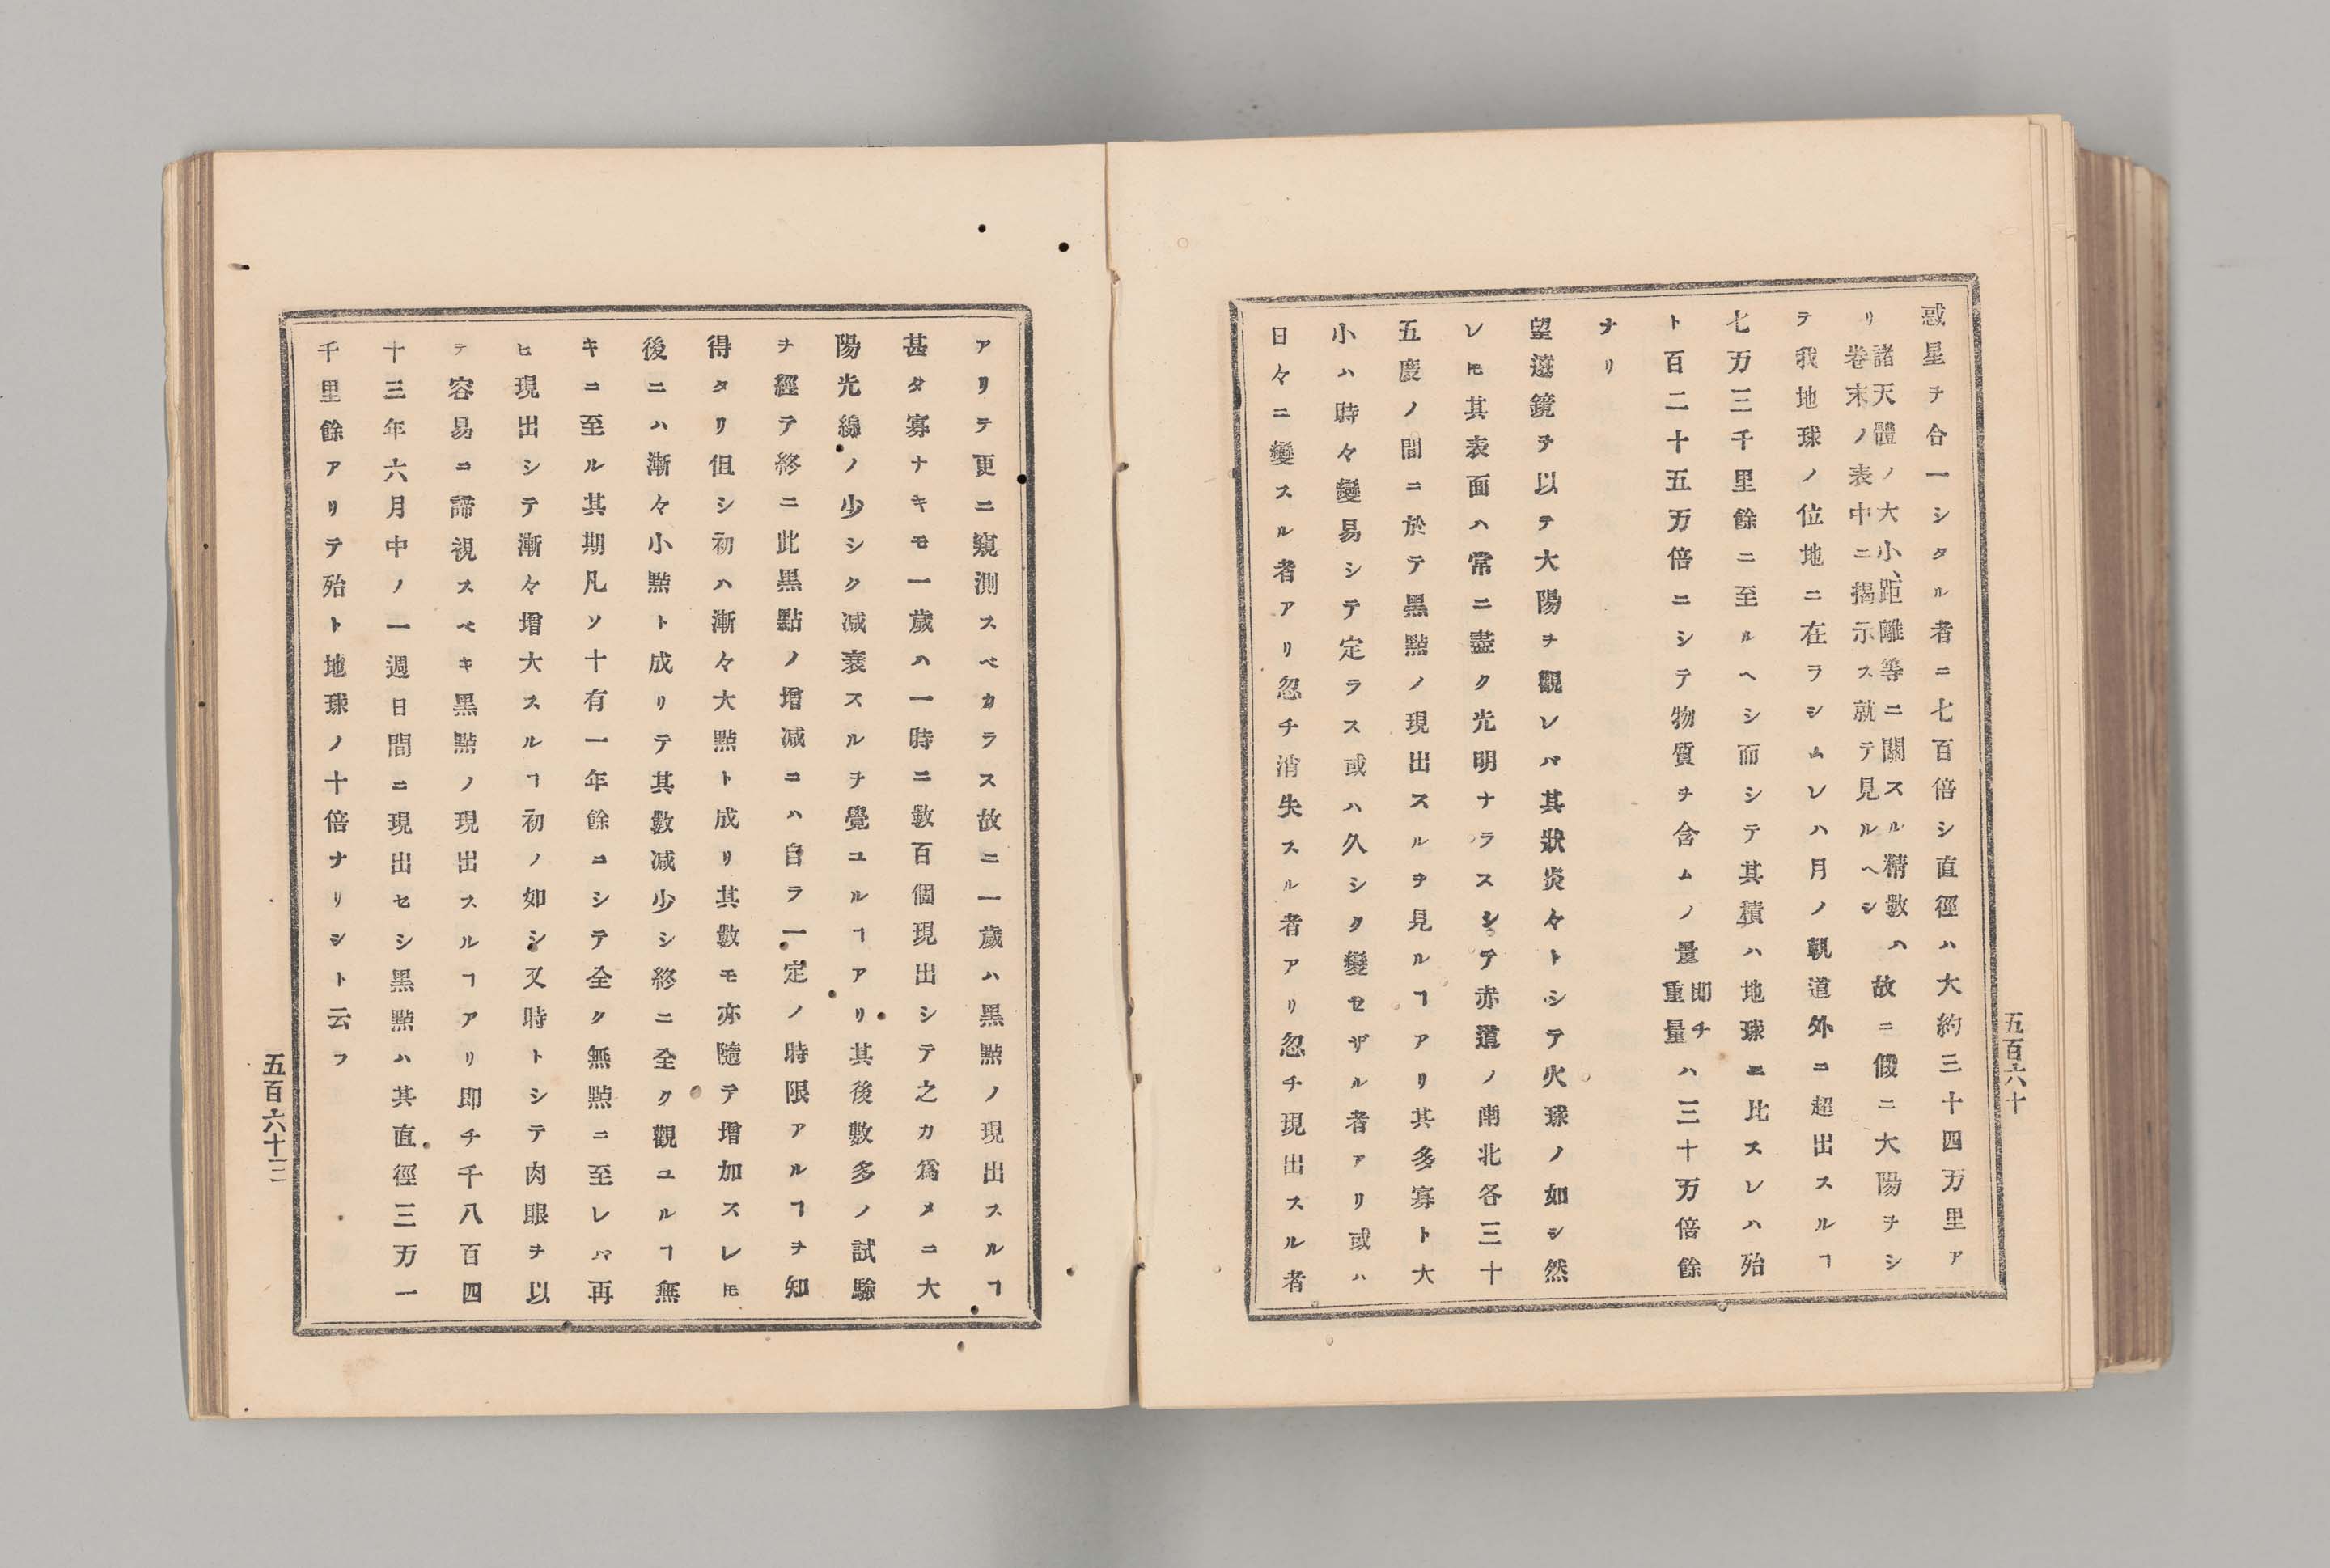 惑星ヲ合一シタル者ニ七百倍シ直徑ハ大約三十四万里ア
リ諸天體ノ大小、距離等ニ關スル精數ハ
卷末ノ表中ニ揭示ス就テ見ルヘシ
故ニ假ニ大陽ヲシ
テ我地球ノ位地ニ在ラシムレハ月ノ軌道外ニ超出スルヿ
七万三千里餘ニ至ルヘシ而シテ其積ハ地球ニ比スレハ殆
ト百二十五万倍ニシテ物質ヲ含ムノ量即チ重量ハ三十万倍餘
ナリ
望遠鏡ヲ以テ大陽ヲ觀レバ其狀炎々トシテ火球ノ如シ然
レ𪜈其表面ハ常ニ盡ク光明ナラスシテ赤道ノ南北各三十
五慶ノ間ニ於テ黑點ノ現出スルヲ見ルヿアリ其多寡ト大
小ハ時々變易シテ定ラス或ハ久シク變セザル者アリ或ハ
日々ニ變スル者アリ忽チ消失スル者アリ忽チ現出スル者
五百六十
アリテ更ニ窺測スベカラス故ニ一歲ハ黑點ノ現出スルヿ
甚タ寡ナキモ一歲ハ一時ニ數百個現出シテ之カ爲メニ大
陽光線ノ少シク减衰スルヲ覺ユルヿアリ其後數多ノ試驗
ヲ經テ終ニ此黑點ノ增减ニハ自ラ一定ノ時限アルヿヲ知
得タリ但シ初ハ漸々大點ト成リ其數モ亦隨テ增加スレ𪜈
後ニハ漸々小點ト成リテ其數减少シ終ニ全ク觀ユルヿ無
キニ至ル其期凡ソ十有一年餘ニシテ全ク無點ニ至レバ再
ヒ現出シテ漸々增大スルヿ初ノ如シ又時トシテ肉眼ヲ以
テ容易ニ諦視スベキ黑點ノ現出スルヿアリ即チ千八百四
十三年六月中ノ一週日間ニ現出セシ黑點ハ其直徑三万一
千里餘アリテ殆ト地球ノ十倍ナリシト云フ
五百六十三